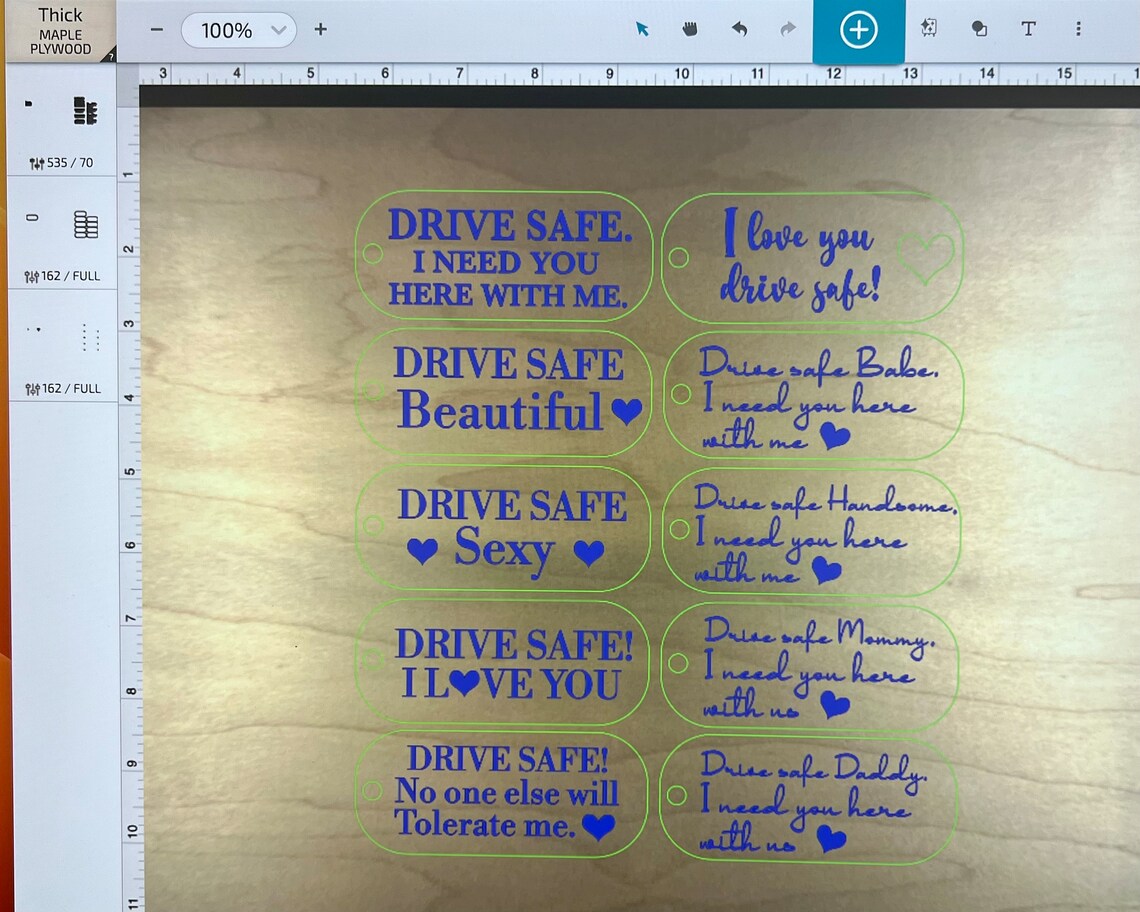 Thick
MAPLE
PLYWOOD
100%
3 4 5 6 7 8 9 10 11 12 13 14 15
535 / 70
162 / FULL
162 / FULL
1
2
3
4
5
6
7
8
9
10
11
DRIVE SAFE.
I NEED YOU
HERE WITH ME.
I love you
drive safe!
DRIVE SAFE
Beautiful
Drive safe Babe.
I need you here
with me
DRIVE SAFE
Sexy
Drive safe Handsome.
I need you here
with me
DRIVE SAFE!
I L♥VE YOU
Drive safe Mommy.
I need you here
with us
DRIVE SAFE!
No one else will
Tolerate me.
Drive safe Daddy.
I need you here
with us